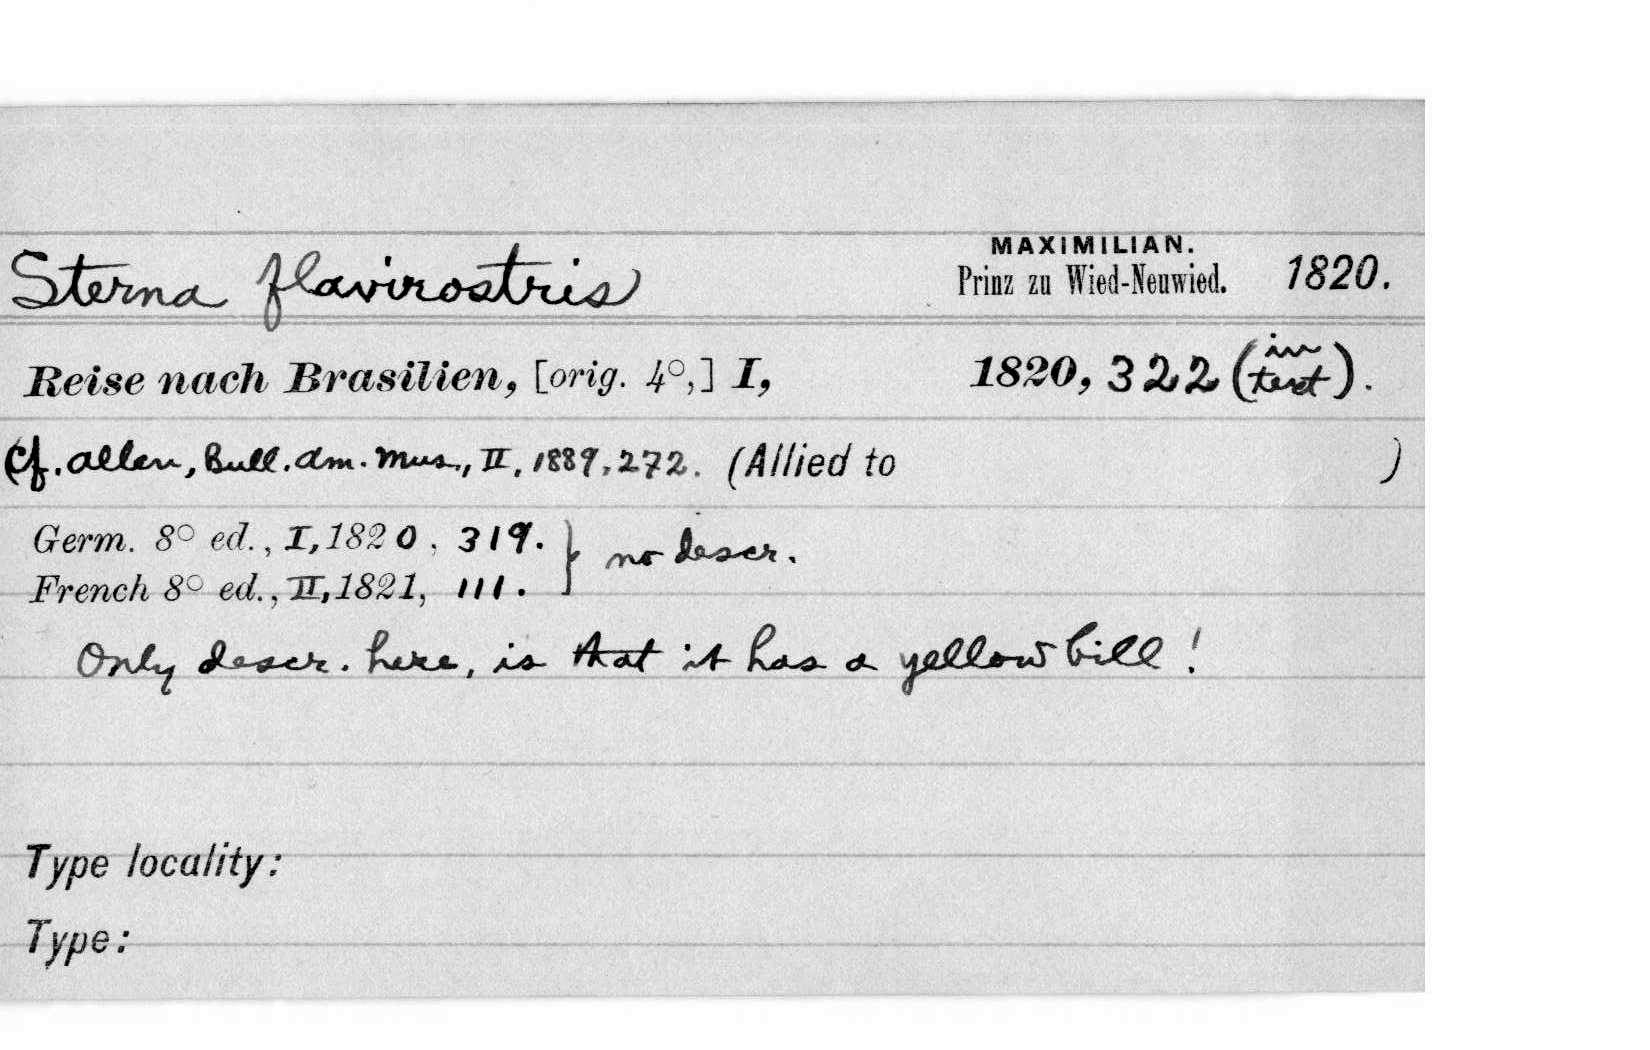 Sterna flavirostris
MAXIMILIAN.
Prinz zu Wied-Neuwied. 1820.
Reise nach Brasilien, [orig. 4°,] I, 1820, 322 (in text).
(Cf. Allen, Bull. Am. Mus., II, 1889, 272. (Allied to )
Germ. 8° ed., I, 1820, 319. } no descr.
French 8° ed., II, 1821, 111.
Only descr. here, is that it has a yellow bill!
Type locality:
Type: